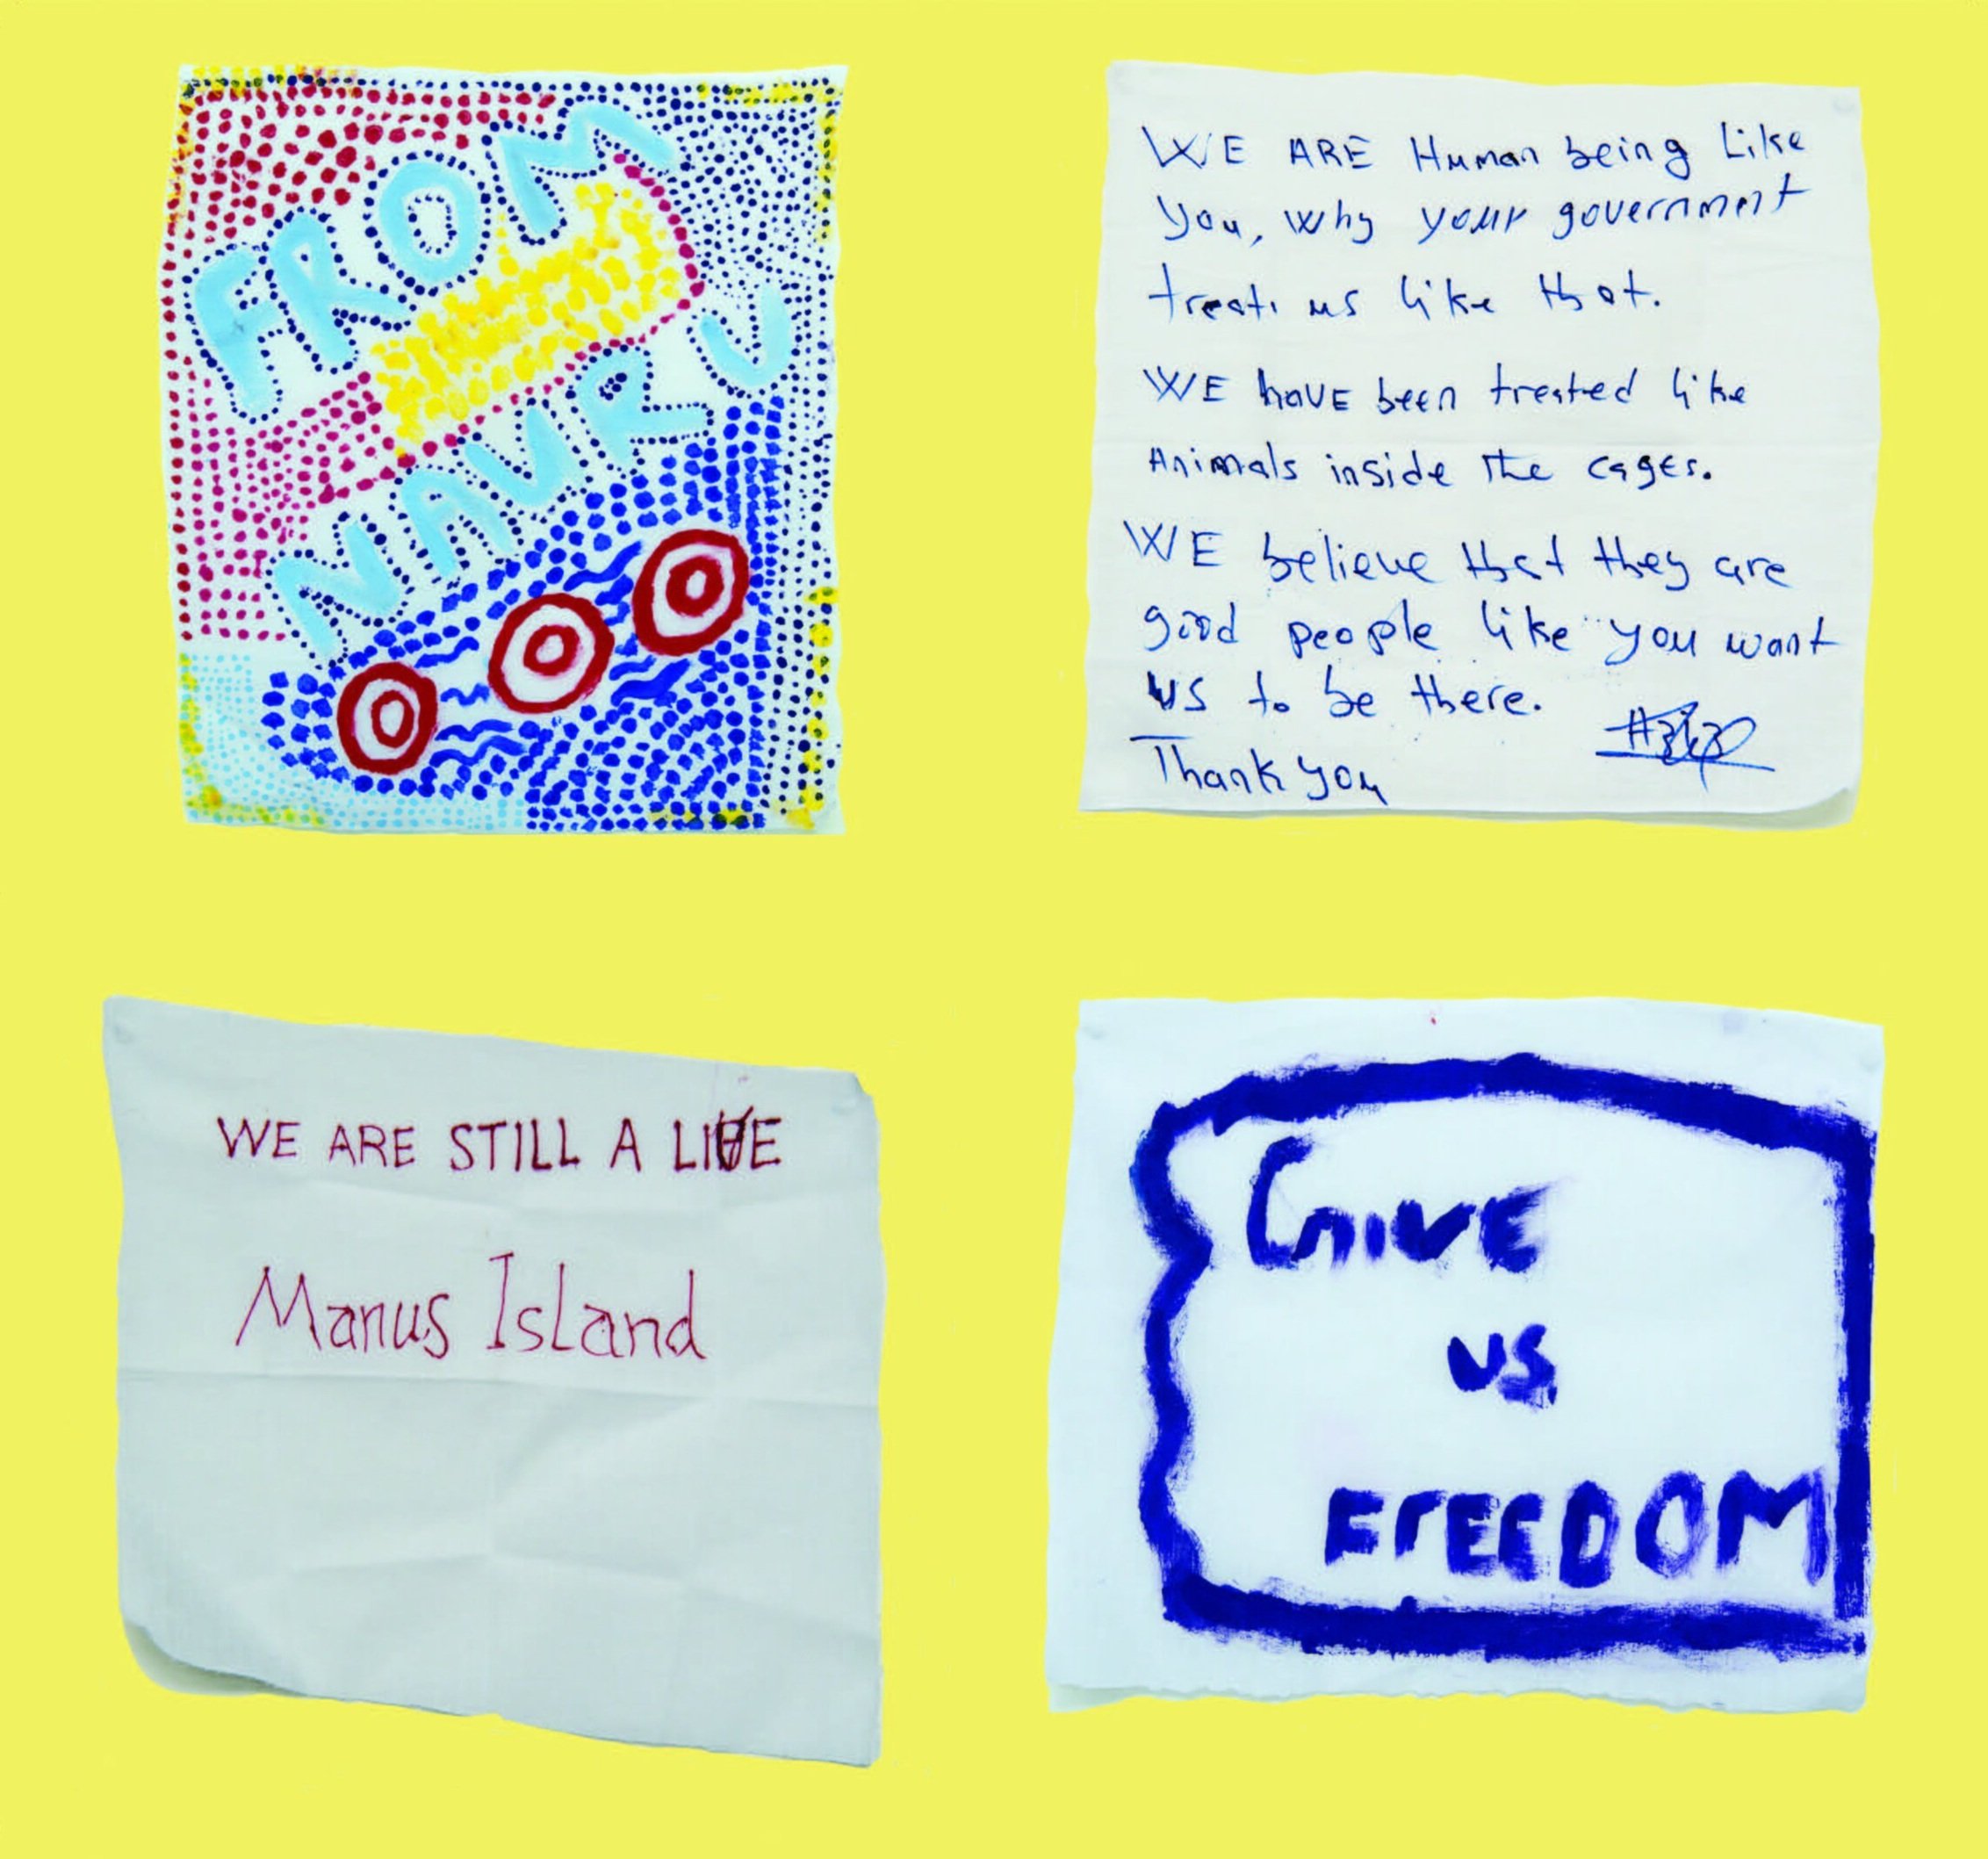 FROM
NAURU
WE ARE Human being Like
you, why your government
treat us like that.
WE haVE been treated like
Animals inside the cagEs.
WE believe that they are
good people like you want
us to be there.
Thank you
WE ARE STILL A LIVE
Manus IsLand
GiVE
US
FrEEDOM